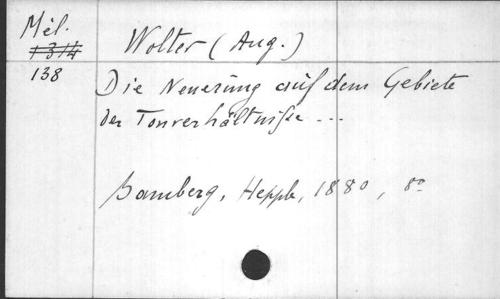 Mél.
1314
138
Wolter (Aug.)
Die Neuerung auf dem Gebiete
der Tonverhältniße ...
Bamberg, Hepple, 1880, 8°